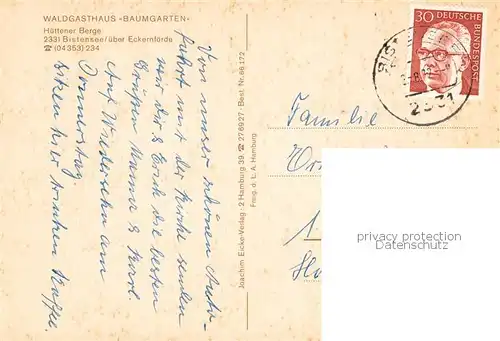 WALDGASTHAUS »BAUMGARTEN«
Hüttener Berge
2331 Bistensee/über Eckernförde
☎ (04353) 234
Von unser schönen Auto-
fahrt mit der Kirche senden
wir dir & Erich die besten
Grüßen Mama & Karl
Auf Wiedersehn am
Donnerstag
hier trinken Kaffee.
Joachim Eicke-Verlag · 2 Hamburg 39 ☎ 276927 · Best. Nr. 66 172
Freig. d. L. A. Hamburg
30 DEUTSCHE
BUNDESPOST
2331
Familie
PRIVATER
Datenschutz